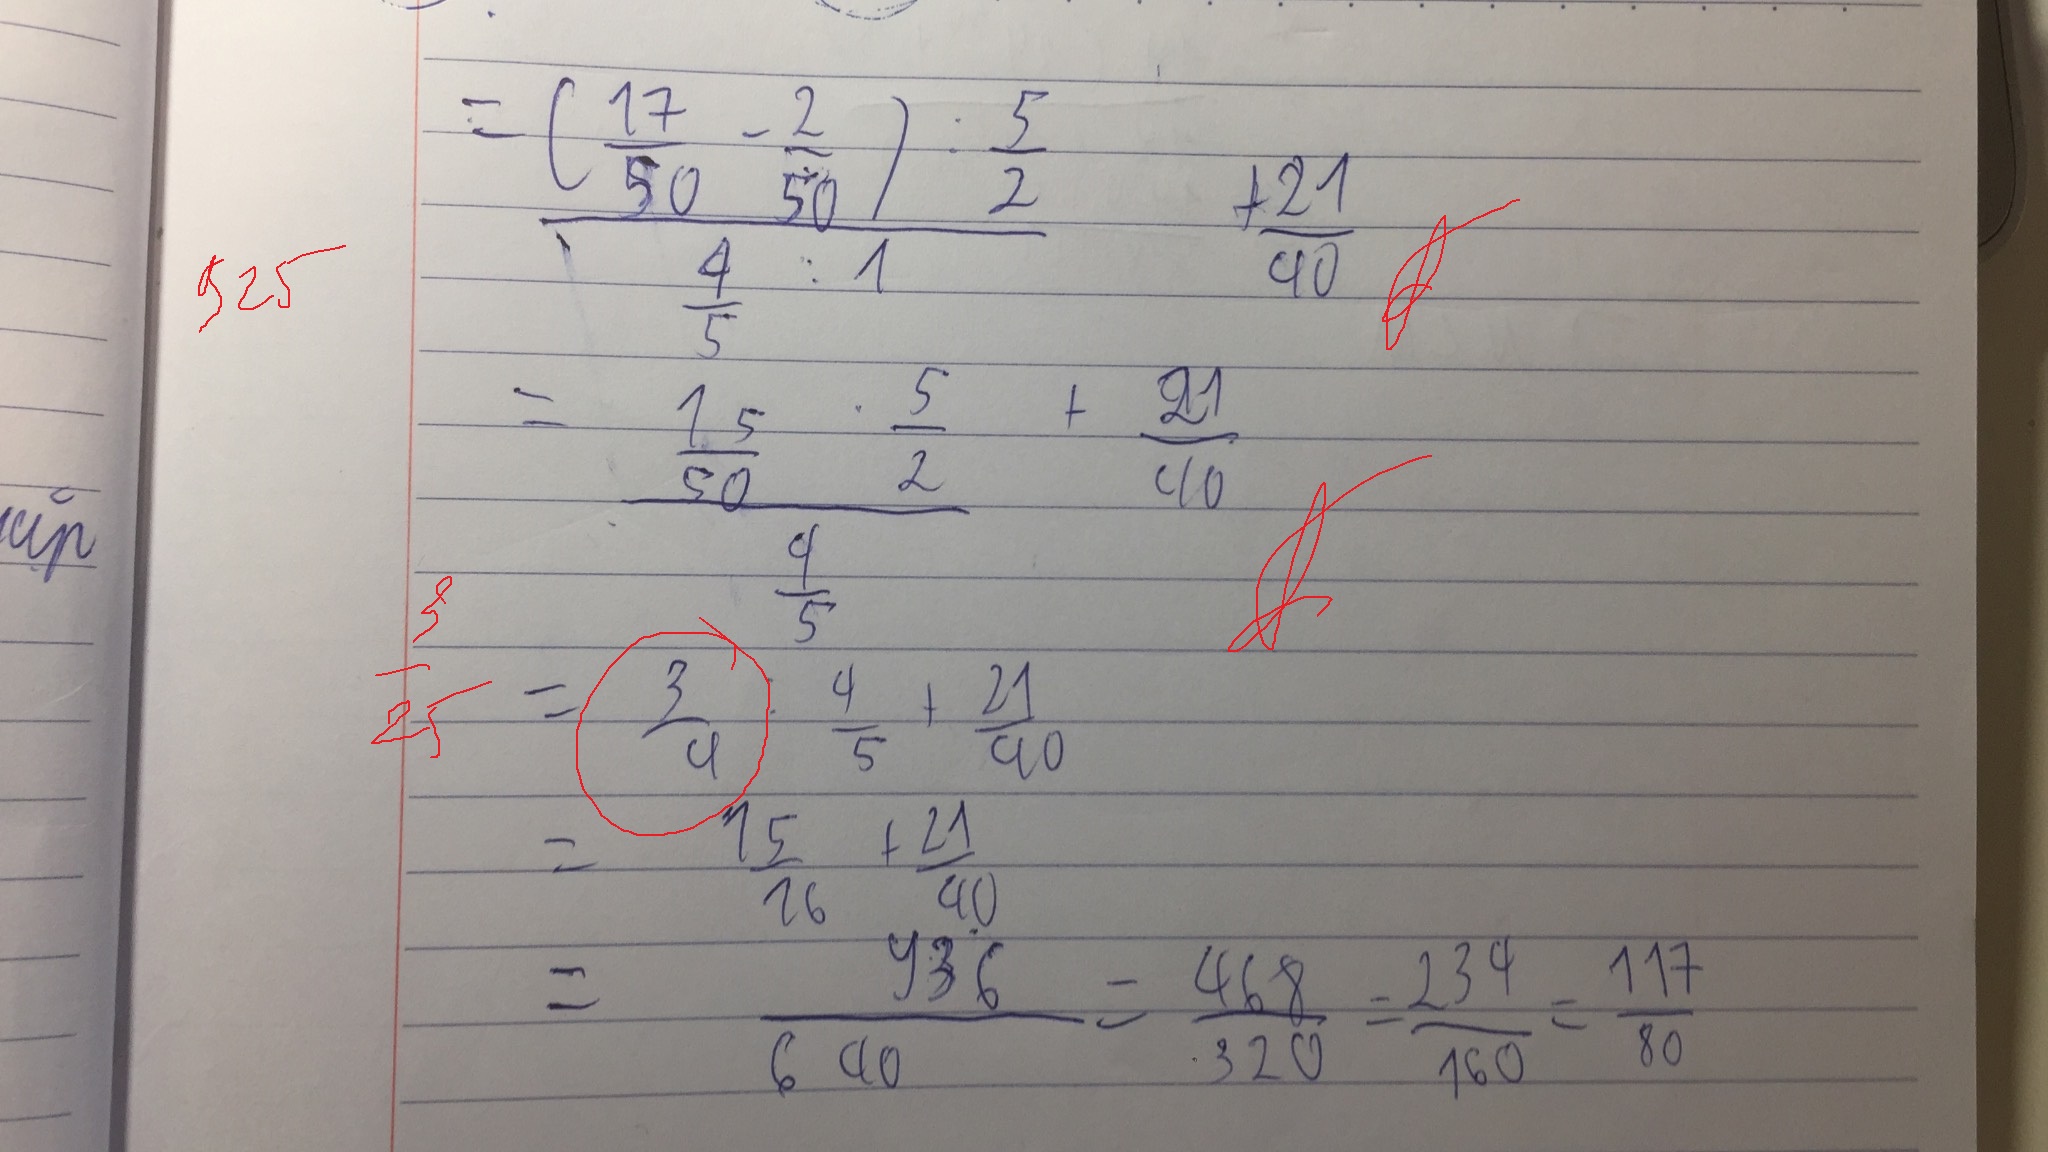 = (17/50 - 2/50) : 5/2
+ 21/40
4/5 : 1
525
= 15/50 . 5/2 + 21/40
4/5
3/25
= 3/4 : 4/5 + 21/40
= 15/16 + 21/40
= 936/640 = 468/320 = 234/160 = 117/80